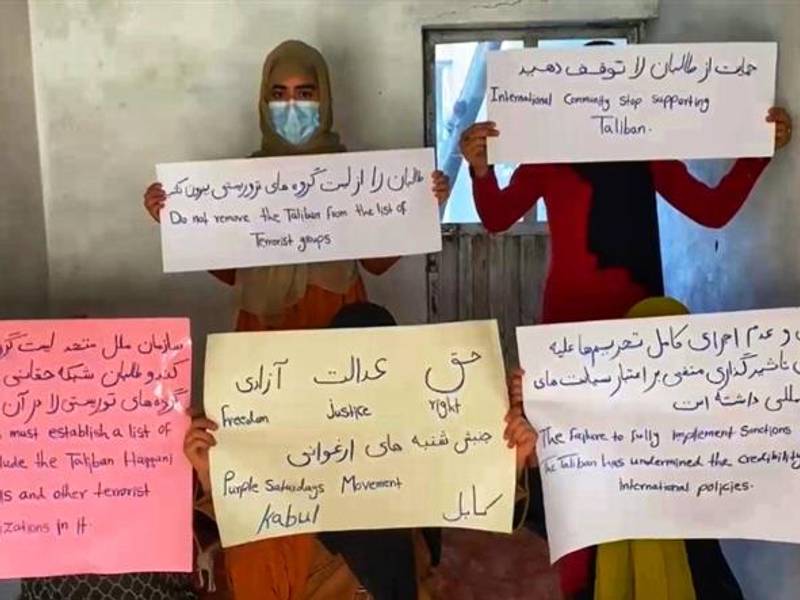 حمایت از طالبان را توقف دهید
International Community stop supporting
Taliban.
طالبان را از لیست گروه های تروریستی بیرون نکنید
Do not remove the Taliban from the list of
Terrorist groups
سازمان ملل متحد لیست
طالبان شبکه حقانی
گروه های تروریستی را در آن
must establish a list of
the Taliban Haqqani
and other terrorist
in it.
حق عدالت آزادی
freedom Justice right
جنبش شنبه های ارغوانی
Purple Saturdays Movement
Kabul کابل
و عدم اجرای کامل تحریم‌ها علیه
تاشیرگذاری منفی بر اعتبار سیاست های
داشته است
The failure to fully implement sanctions
The Taliban has undermined the credibility
International policies.